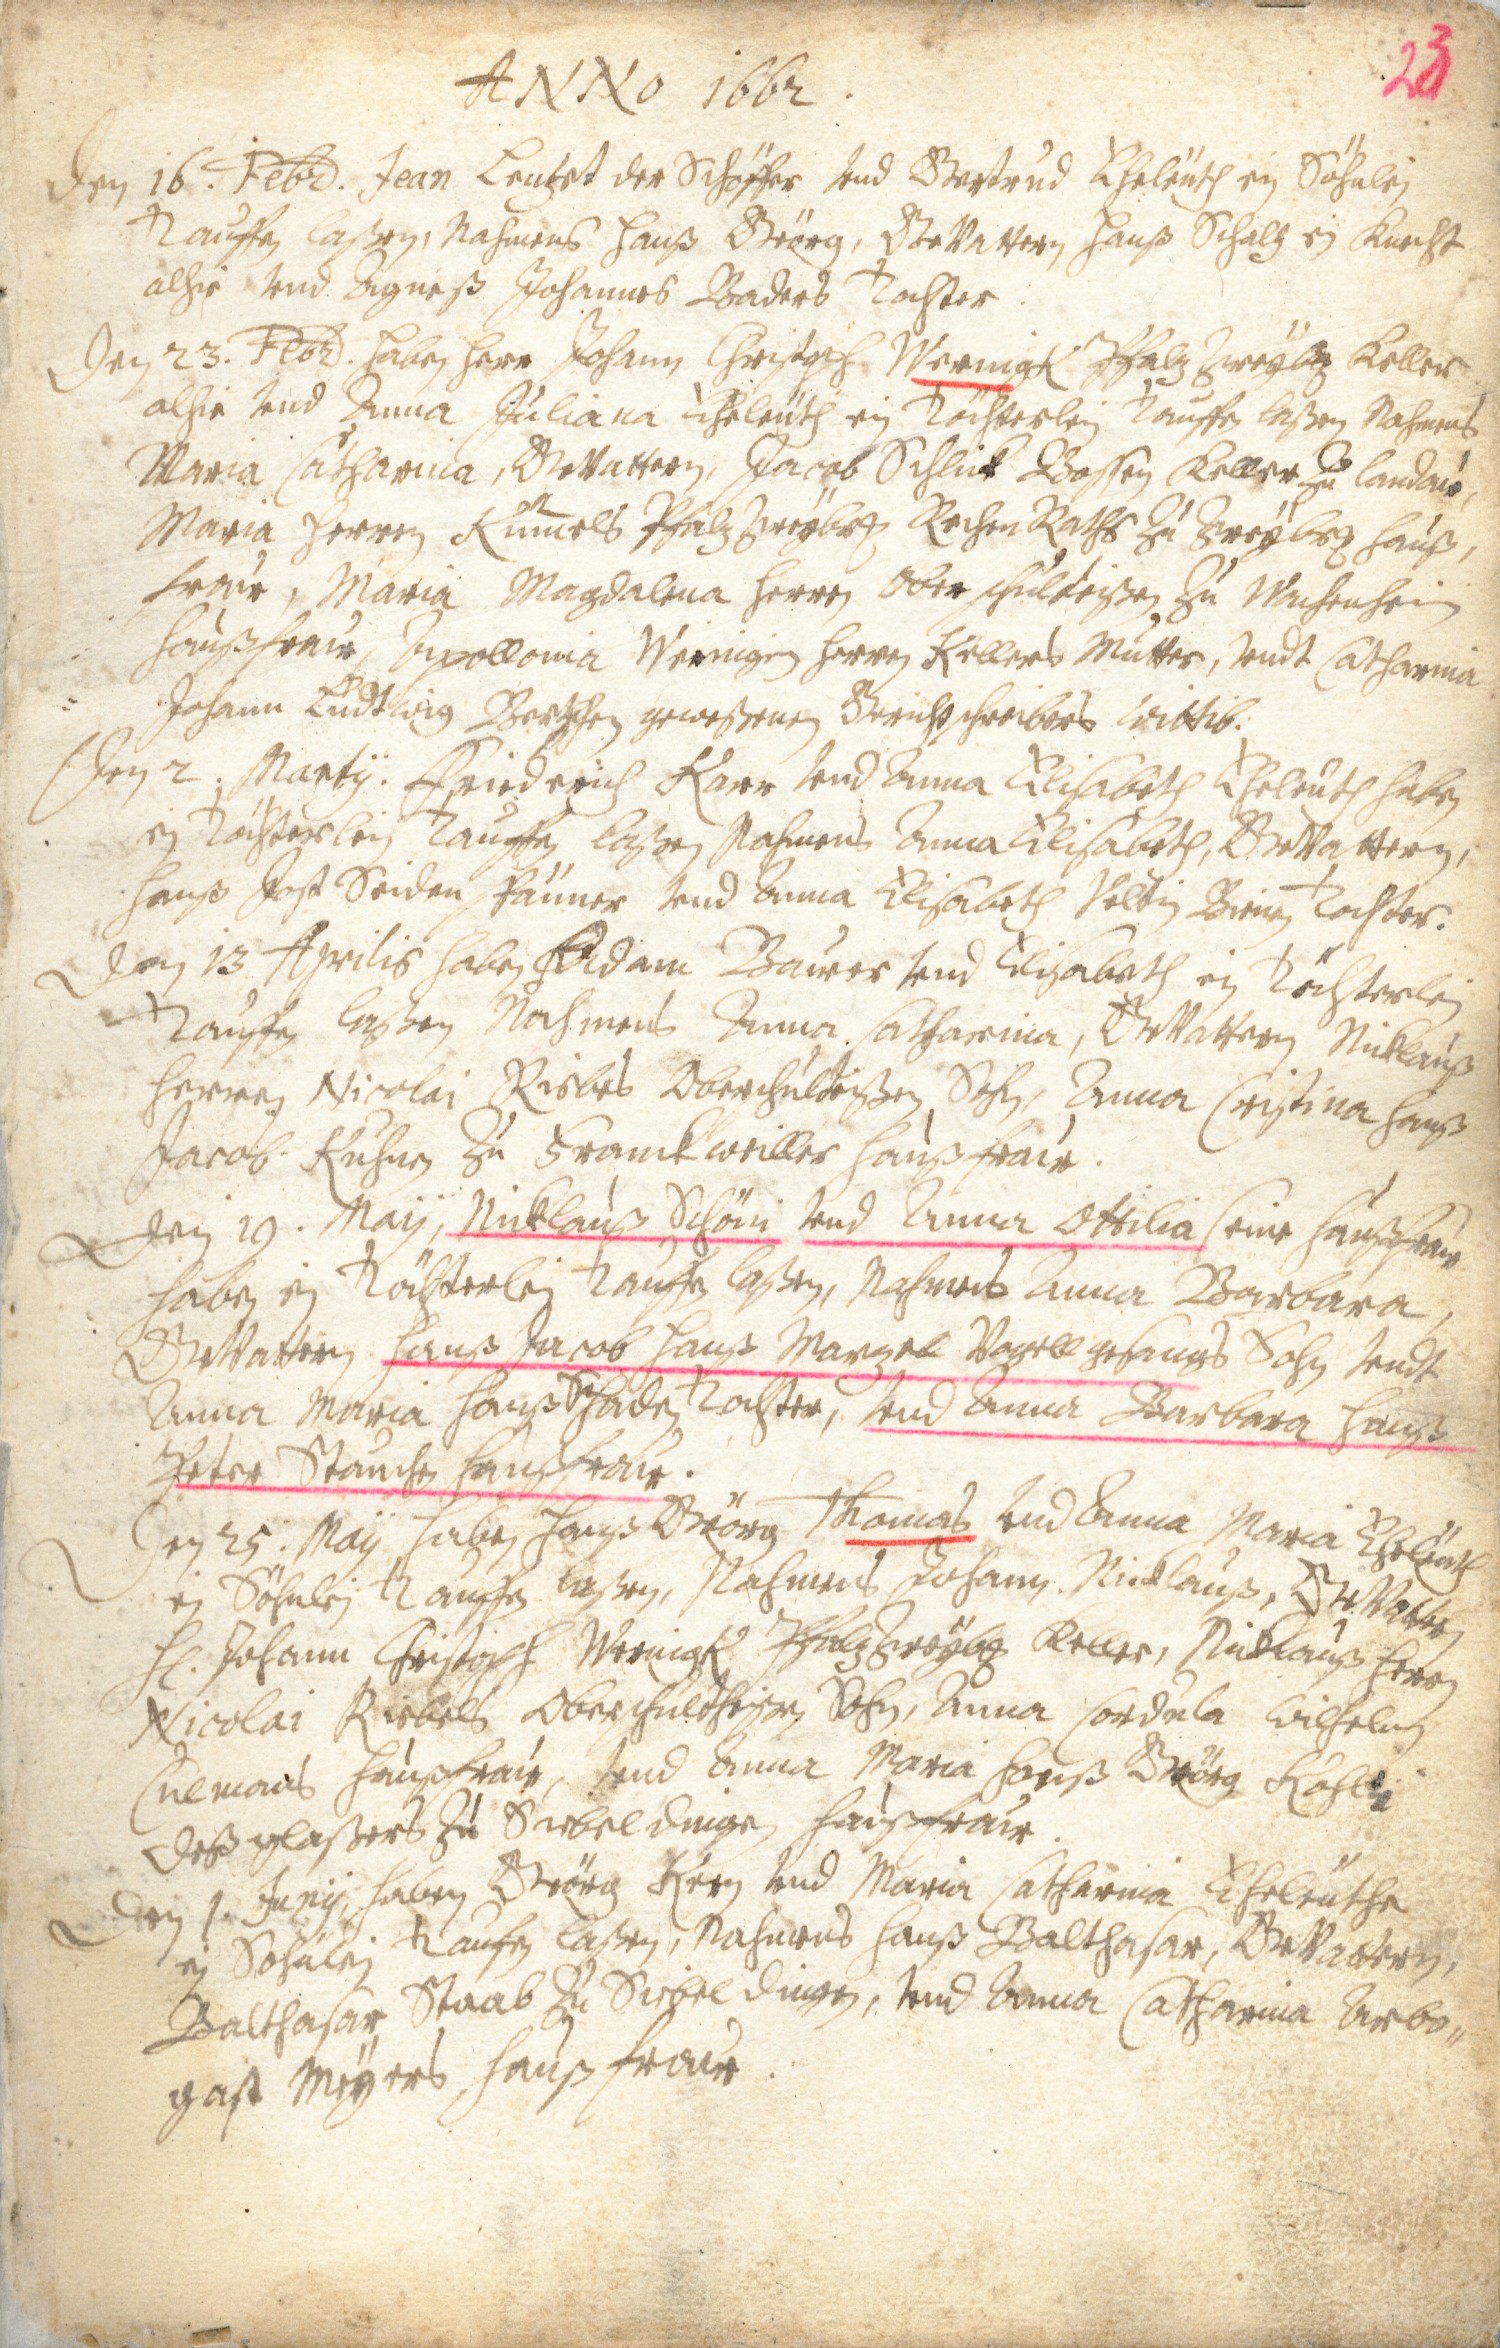 23
ANNO 1662.
Den 16. Febr. Jean Lentzet der Schöffer vnd Gertrud Eheleüth ein Söhnlein
Tauffen laßen, Nahmens Hanß Geörg, Gevattern Hanß Schaltz ein Knecht
alhie vnd Agneß Johannes Baders Tochter.
Den 23. Febr. haben Herr Johann Christoph Wernigk Pfaltz Zweÿbr. Keller
alhie vnd Anna Juliana Eheleüth ein Töchterlein Tauffen laßen Nahmens
Maria Catharina, Gevattern, Jacob Schlick Keller zu Landau,
Maria Herren Kümmels Pfaltz Zweÿbr. Rechen Raths zu Zweÿbr. Hauß,
fraw, Maria Magdalena Herren Oberschuldeißen zu Wachenheim
haußfraw, Apollonia Wernigin Herren Kellers Mutter, vndt Catharina
Johann Ludtwig gewesenen Gerichtschreibers Wittib.
Den 2. Martij. Friederich Karr vnd Anna Elisabeth Eheleuth haben
ein Töchterlein Tauffen laßen Nahmens Anna Elisabeth, Gevattern,
Hanß Jost Seidenspänner vnd Anna Elisabeth Veltin Tochter.
Den 13 Aprilis haben Adam Bawer vnd Elisabeth ein Töchterlein
Tauffen laßen Nahmens Anna Catharina, Gevattern Nicklauß
Herren Nicolai Riebes Oberschuldeißen Sohn, Anna Cristina Hanß
Jacob Kuhnen zu Franckweiller Haußfraw.
Den 19. Maij, Nicklauß Schöni vnd Anna Ottilia seine haußfraw
haben ein Töchterlein Tauffen laßen, Nahmens Anna Barbara,
Gevattern Hanß Jacob Hanß Marzell Vogellgesangs Sohn vndt
Anna Maria Hanß Schaden Tochter, vnd Anna Barbara Hanß
Peter Stauchen haußfraw.
Den 25. Maij haben Hanß Geörg Thomas vnd Anna Maria Eheleüth
ein Söhnlein Tauffen laßen, Nahmens Johann Nicklauß, Gevattern
H. Johann Christoph Wernigk Pfaltz Zweÿbr. Keller, Nicklauß Herren
Nicolai Riebels Oberschultheißen Sohn, Anna Cordula Wilhelm
Culmans haußfraw, vnd Anna Maria Hanß Geörg
deß glaßers zu Siebeldingen haußfraw.
Den 1. Junij, haben Geörg Kern vnd Maria Catharina Eheleuthe
ein Söhnlein Tauffen laßen, Nahmens Hanß Balthasar, Gevattern,
Balthasar Staab zu Siebeldingen, vnd Anna Catharina Arbo-
gast Meÿers haußfraw.